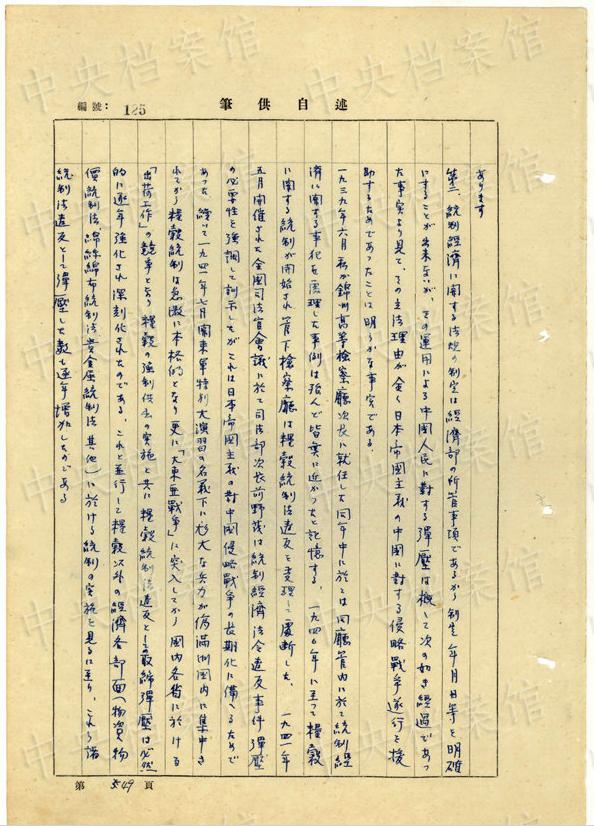 中央档案馆
編號： 125
筆供自述
あります
第三、統制経済に関する法規の制定は経済部の所管事項であるから制定年月日等を明確
にすることが出来ないが、その運用による中國人民に対する弾壓は概して次の如き経過であっ
た事実より見て、その立法理由が全く日本帝國主義の中國に対する侵略戦争遂行を援
助するためであったことは明らかな事実である。
一九三九年六月私が錦州高等検察廳次長に就任した同年中に於ては同廳管内に於て統制経
済に関する事犯を處理した事例は殆んど皆無に近かったと記憶する、一九四〇年に至って糧穀
に関する統制が開始され管下検察廳は糧穀統制法違反を受理して處断した、一九四一年
五月開催された全國司法官會議に於て司法部次長前野茂は統制経済法令違反事件弾壓
の必要性を強調して訓示したがこれは日本帝國主義の対中國侵略戦争の長期化に備へるためで
あった 続いて一九四一年七月関東軍特別大演習の名義下に厖大な兵力が偽満洲国内に集中さ
れてから糧穀統制は急激に本格的となり更に「大東亜戦争」に突入してから國内各省に於ける
「出荷工作」の競争となり糧穀の強制供出の実施と共に糧穀統制法違反としての取締弾壓は必然
的に逐年強化され深刻化されたのである、これと並行して糧穀以外の経済各部面（物資物
價統制法、綿糸綿布統制法、貴金屬統制法 其他）に於ける統制の実施を見るに至り、これら諸
統制法違反として弾壓した数も逐年増加したのである
第 549 頁